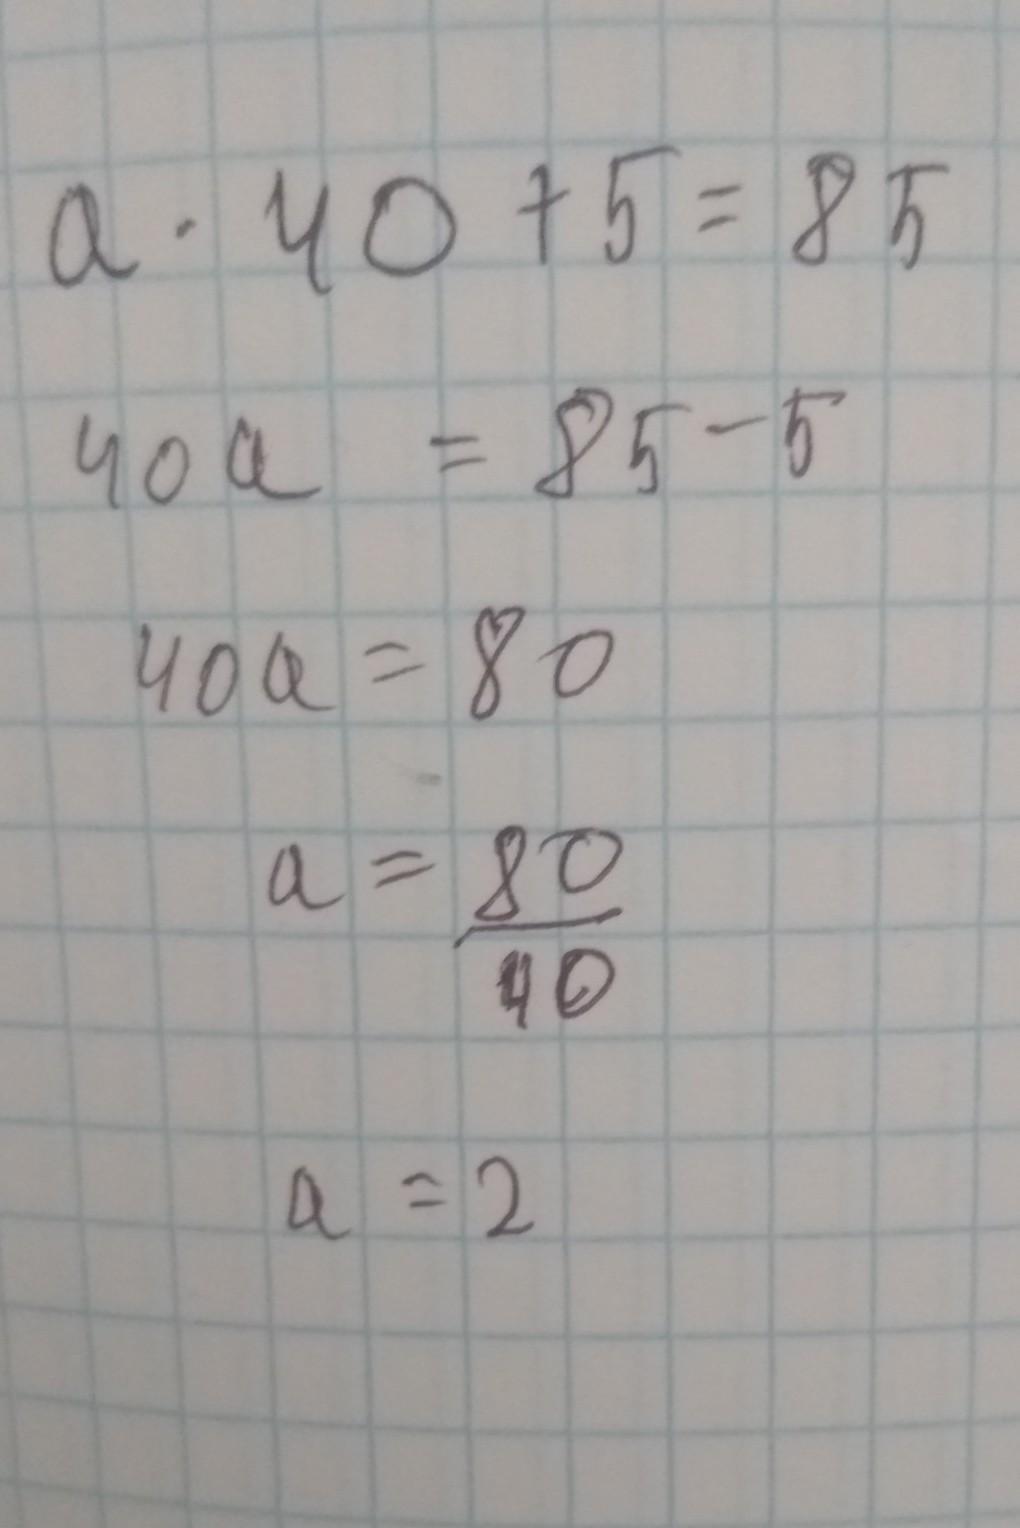 a · 40 + 5 = 85
40a = 85 - 5
40a = 80
a = 80/40
a = 2